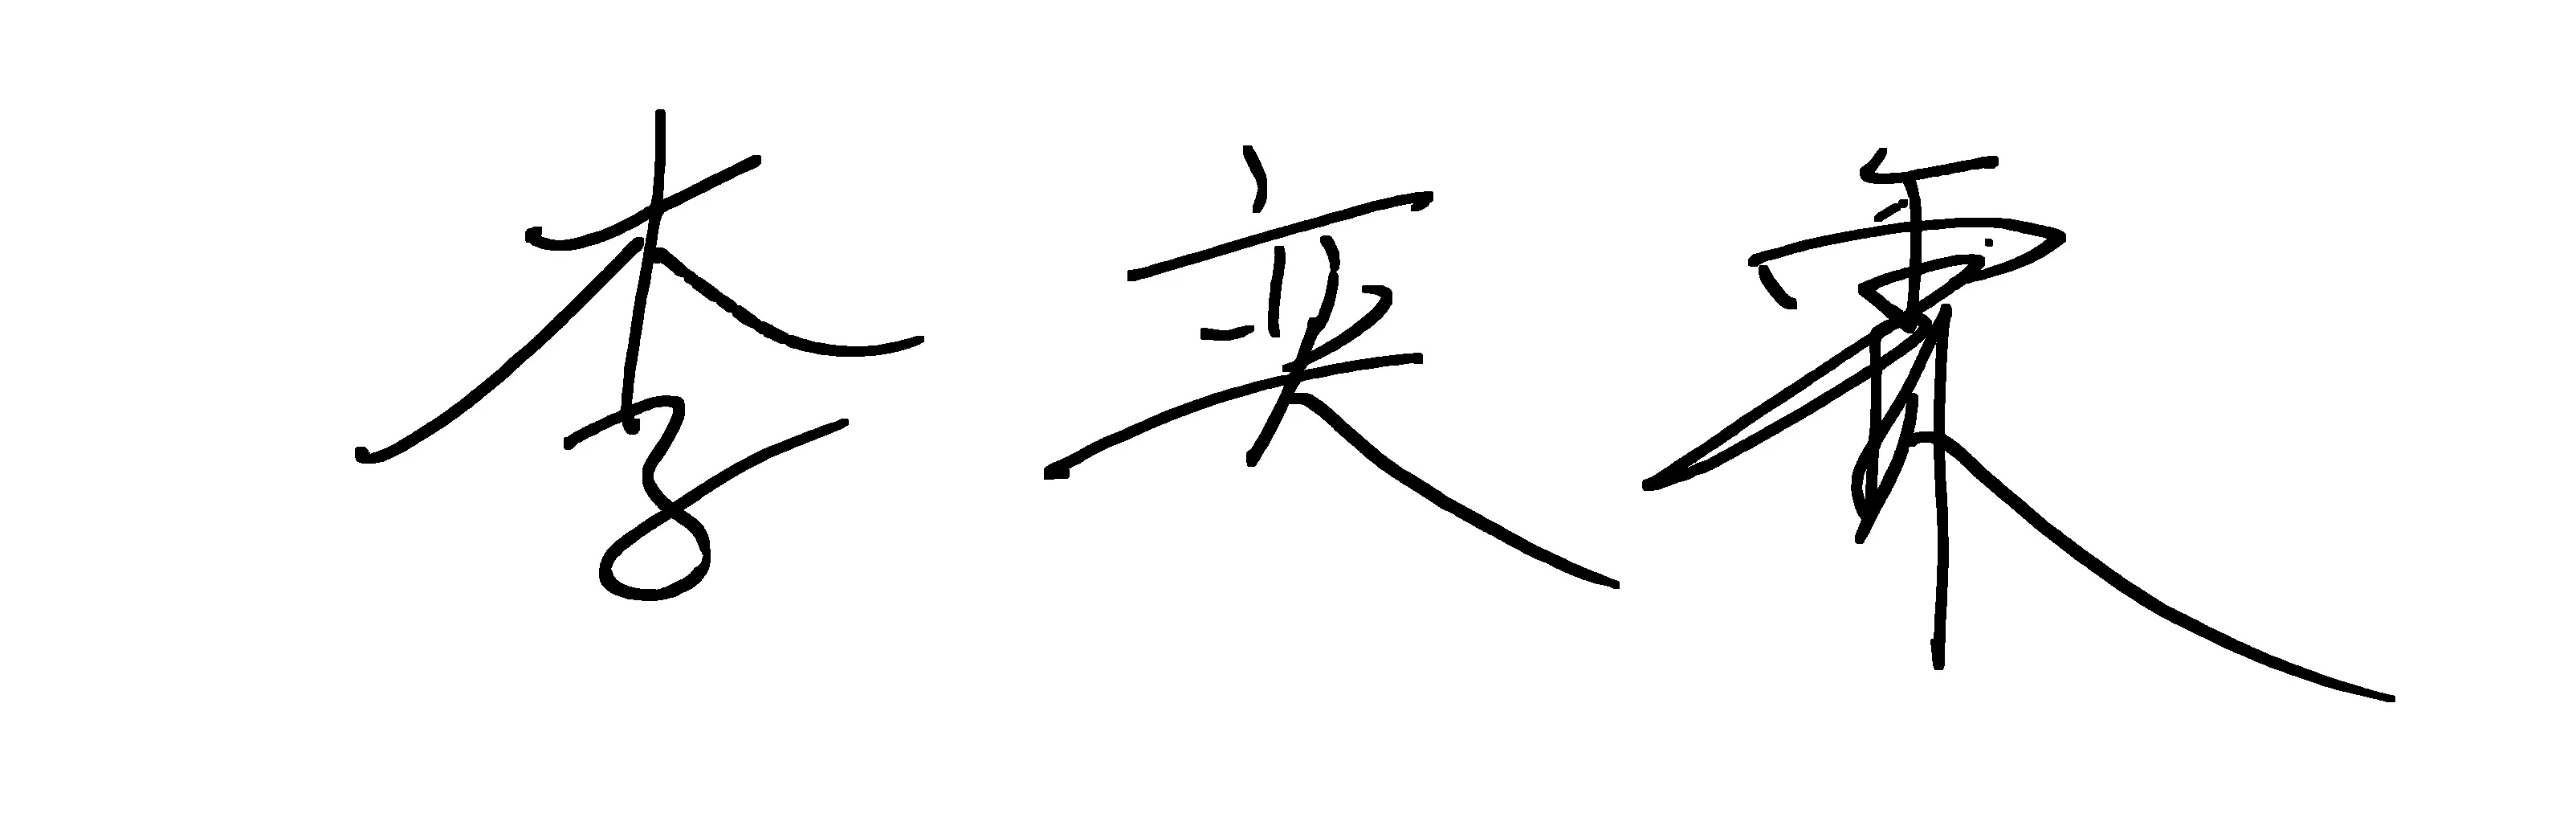 李奕霖